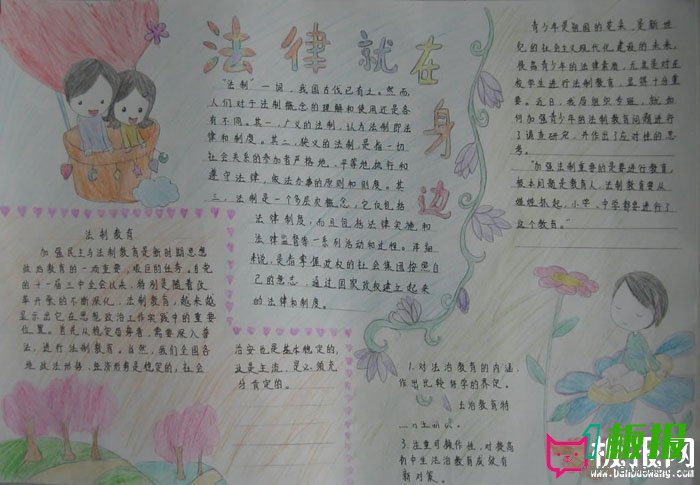 法律就在身边
"法制"一词，我国古代已有之。然而，
人们对于法制概念的理解和使用还是各
有不同。其一，广义的法制，认为法制即法
律和制度。其二，狭义的法制，是指一切
社会关系的参加者严格地、平等地执行和
遵守法律，依法办事的原则和制度。其
三，法制是一个多层次概念，它不仅包括
法律制度，而且包括法律实施和
法律监督等一系列活动和过程。详细
来说，是指掌握政权的社会集团按照自
己的意志，通过国家政权建立起来
的法律和制度。
青少年是祖国的花朵，是新世
纪的社会主义现代化建设的未来，
提高青少年的法律素质，尤其是对在
校学生进行法制教育，显得十分重
要。近日，我局组织专班，就如
何加强青少年的法制教育问题进行
了调查研究，并作出了应对性的思
考。
"加强法制重要的是要进行教育，
根本问题是教育人，法制教育要从
娃娃抓起，小学、中学都要进行了
这个教育。"
法制教育
加强民主与法制教育是新时期思想
政治教育的一项重要、艰巨的任务。自党
的十一届三中全会以来，特别是随着改
革开张的不断深化，法制教育，越来越
显示出它在思想政治工作实践中的重要
位置。首先从稳定后奔者，需要深入普
法，进行法制教育。当然，我们全国各
地政法形势、经济形势是稳定的，社会
治安也是基本稳定的，
这是主流，是必须充
分肯定的。
1.对法治教育的内涵，
作出比较科学的界定。
法治教育特
3.注重可操作性，对提高
初中生法治教育成效有
新对策。
板报网
www.banbaowang.com